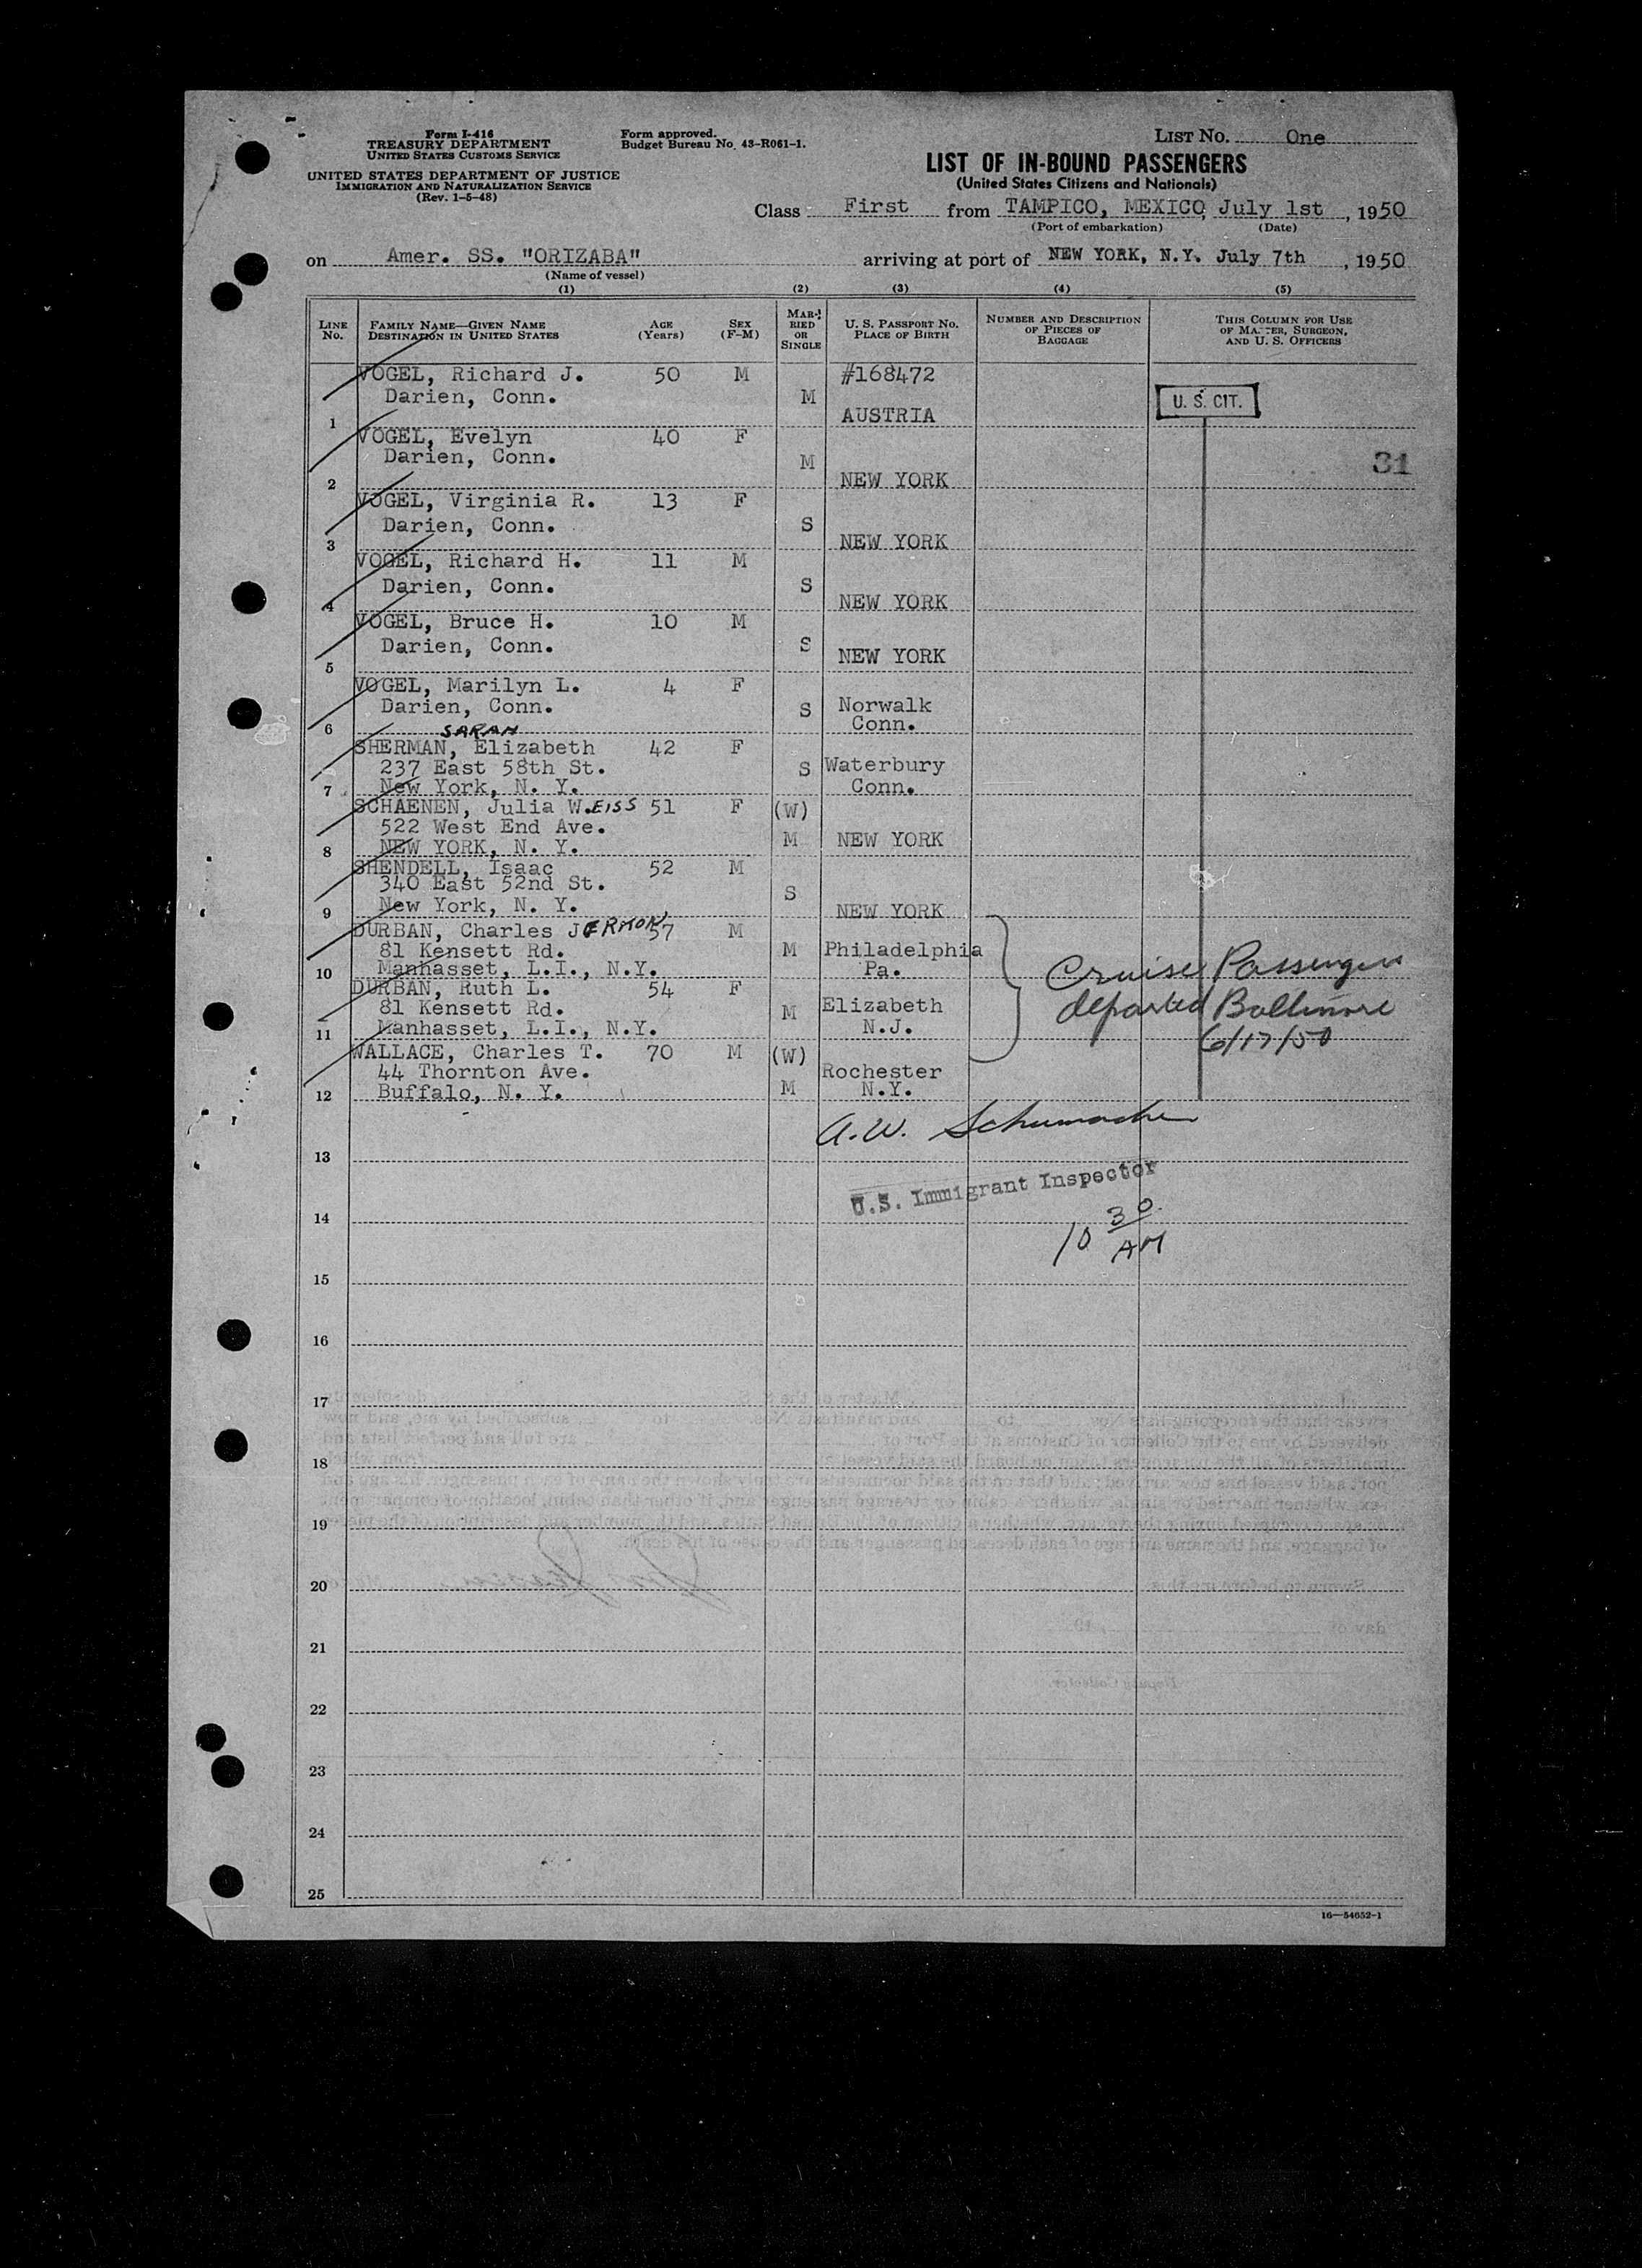 Form I-416
TREASURY DEPARTMENT
UNITED STATES CUSTOMS SERVICE
UNITED STATES DEPARTMENT OF JUSTICE
IMMIGRATION AND NATURALIZATION SERVICE
(Rev. 1-5-48)
Form approved.
Budget Bureau No. 43-R061-1.
LIST NO. One
LIST OF IN-BOUND PASSENGERS
(United States Citizens and Nationals)
Class First from TAMPICO, MEXICO, July 1st, 1950
(Port of embarkation) (Date)
on Amer. SS. "ORIZABA" arriving at port of NEW YORK, N.Y. July 7th, 1950
(Name of vessel)
(1) (2) (3) (4) (5)
LINE NO. FAMILY NAME—GIVEN NAME DESTINATION IN UNITED STATES AGE (Years) SEX (F-M) MARRIED OR SINGLE U. S. PASSPORT NO. PLACE OF BIRTH NUMBER AND DESCRIPTION OF PIECES OF BAGGAGE THIS COLUMN FOR USE OF MASTER, SURGEON, AND U. S. OFFICERS
VOGEL, Richard J. 50 M #168472
Darien, Conn. M U. S. CIT.
1 AUSTRIA
VOGEL, Evelyn 40 F
Darien, Conn. M 31
2 NEW YORK
VOGEL, Virginia R. 13 F
Darien, Conn. S
3 NEW YORK
VOGEL, Richard H. 11 M
Darien, Conn. S
4 NEW YORK
VOGEL, Bruce H. 10 M
Darien, Conn. S
5 NEW YORK
VOGEL, Marilyn L. 4 F
Darien, Conn. S Norwalk
6 Conn.
SARAH
SHERMAN, Elizabeth 42 F
237 East 58th St. S Waterbury
7 New York, N. Y. Conn.
SCHAENEN, Julia W.EISS 51 F (W)
522 West End Ave.
8 NEW YORK, N. Y. M NEW YORK
SHENDELL, Isaac 52 M
340 East 52nd St. S
9 New York, N. Y. NEW YORK
DURBAN, Charles JERMON 57 M
81 Kensett Rd. M Philadelphia
10 Manhasset, L.I., N.Y. Pa.
DURBAN, Ruth L. 54 F
81 Kensett Rd. M Elizabeth
11 Manhasset, L.I., N.Y. N.J.
Cruise Passengers
departed Baltimore
6/17/50
WALLACE, Charles T. 70 M (W)
44 Thornton Ave. Rochester
12 Buffalo, N. Y. M N.Y.
A. W. Schumacher
13
U.S. Immigrant Inspector
14
10 30 AM
15
16
17
18
19
20
21
22
23
24
25
16—54652-1